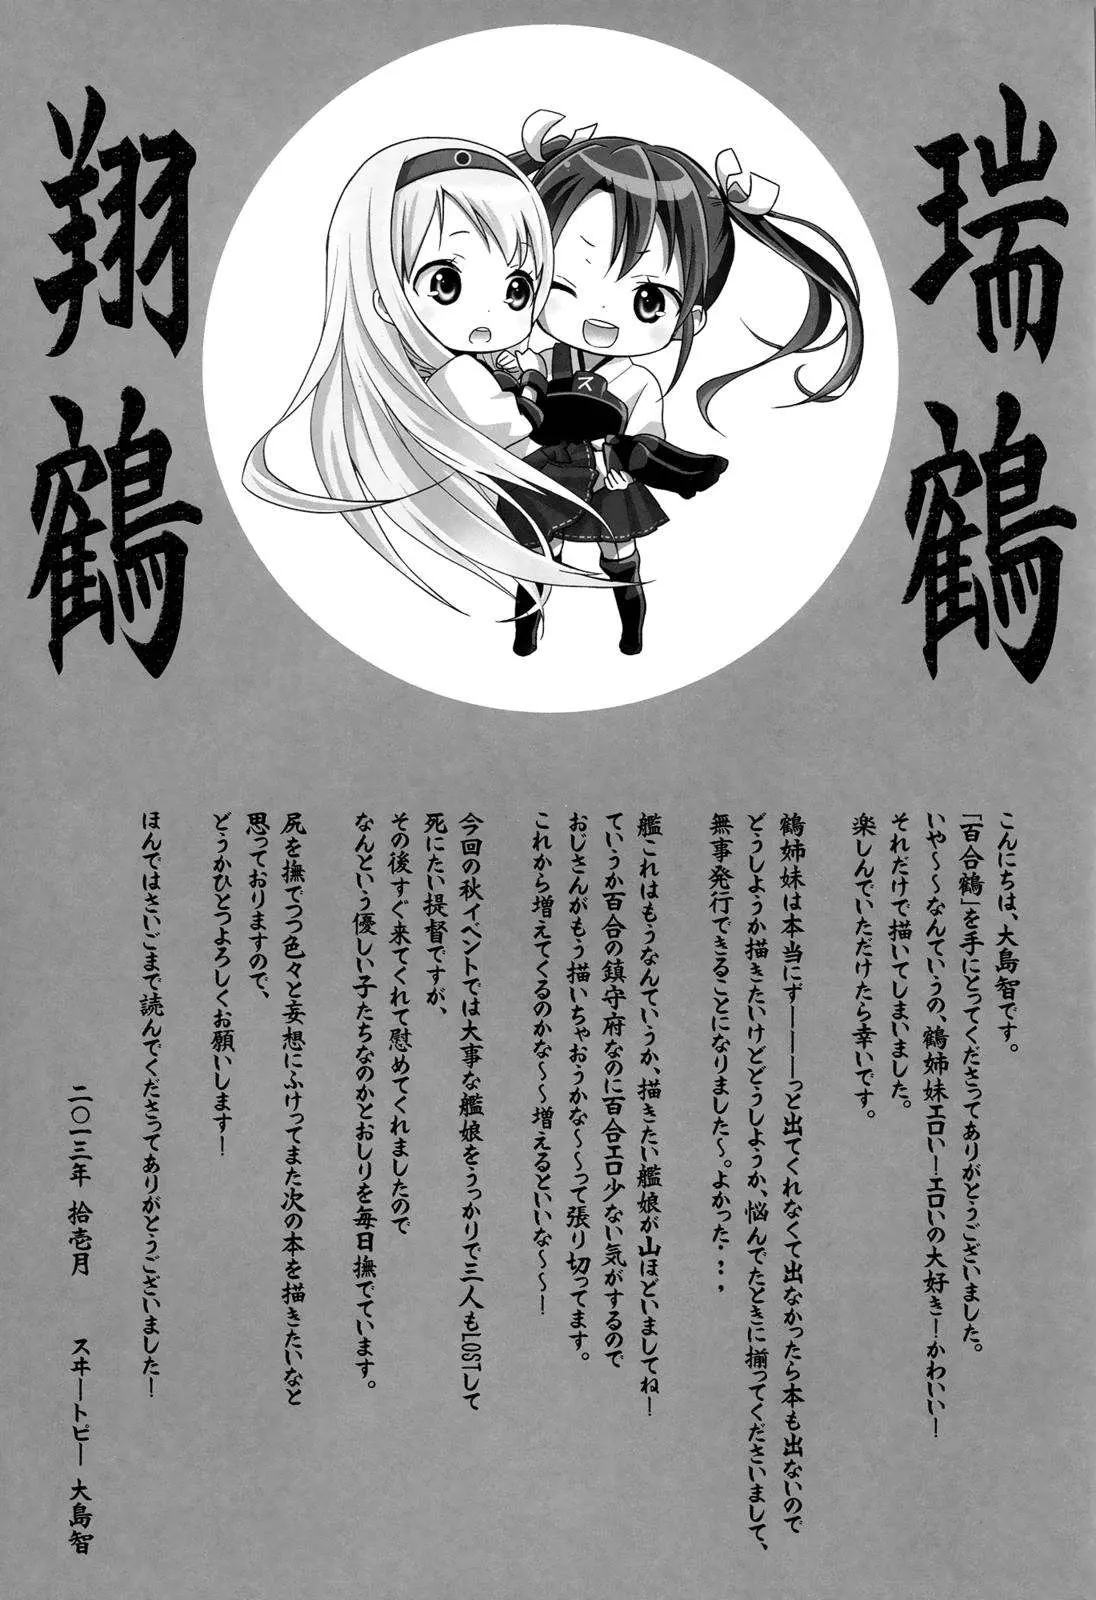 瑞鶴
翔鶴
ス
こんにちは、大島智です。
「百合鶴」を手にとってくださってありがとうございました。
いや～～なんていうの、鶴姉妹エロい！エロいの大好き！かわいい！
それだけで描いてしまいました。
楽しんでいただけたら幸いです。
鶴姉妹は本当にずーーーっと出てくれなくて出なかったら本も出ないので
どうしようか描きたいけどどうしようか、悩んでたときに揃ってくださいまして、
無事発行できることになりました～。よかった・・・
艦これはもうなんていうか、描きたい艦娘が山ほどいましてね！
ていうか百合の鎮守府なのに百合エロ少ない気がするので
おじさんがもう描いちゃおうかな～～って張り切ってます。
これから増えてくるのかな～～増えるといいな～～！
今回の秋イベントでは大事な艦娘をうっかりで三人もLOSTして
死にたい提督ですが、
その後すぐ来てくれて慰めてくれましたので
なんという優しい子たちなのかとおしりを毎日撫でています。
尻を撫でつつ色々と妄想にふけってまた次の本を描きたいなと
思っておりますので、
どうかひとつよろしくお願いします！
ほんではさいごまで読んでくださってありがとうございました！
二〇一三年 拾壱月 スヰートピー 大島智